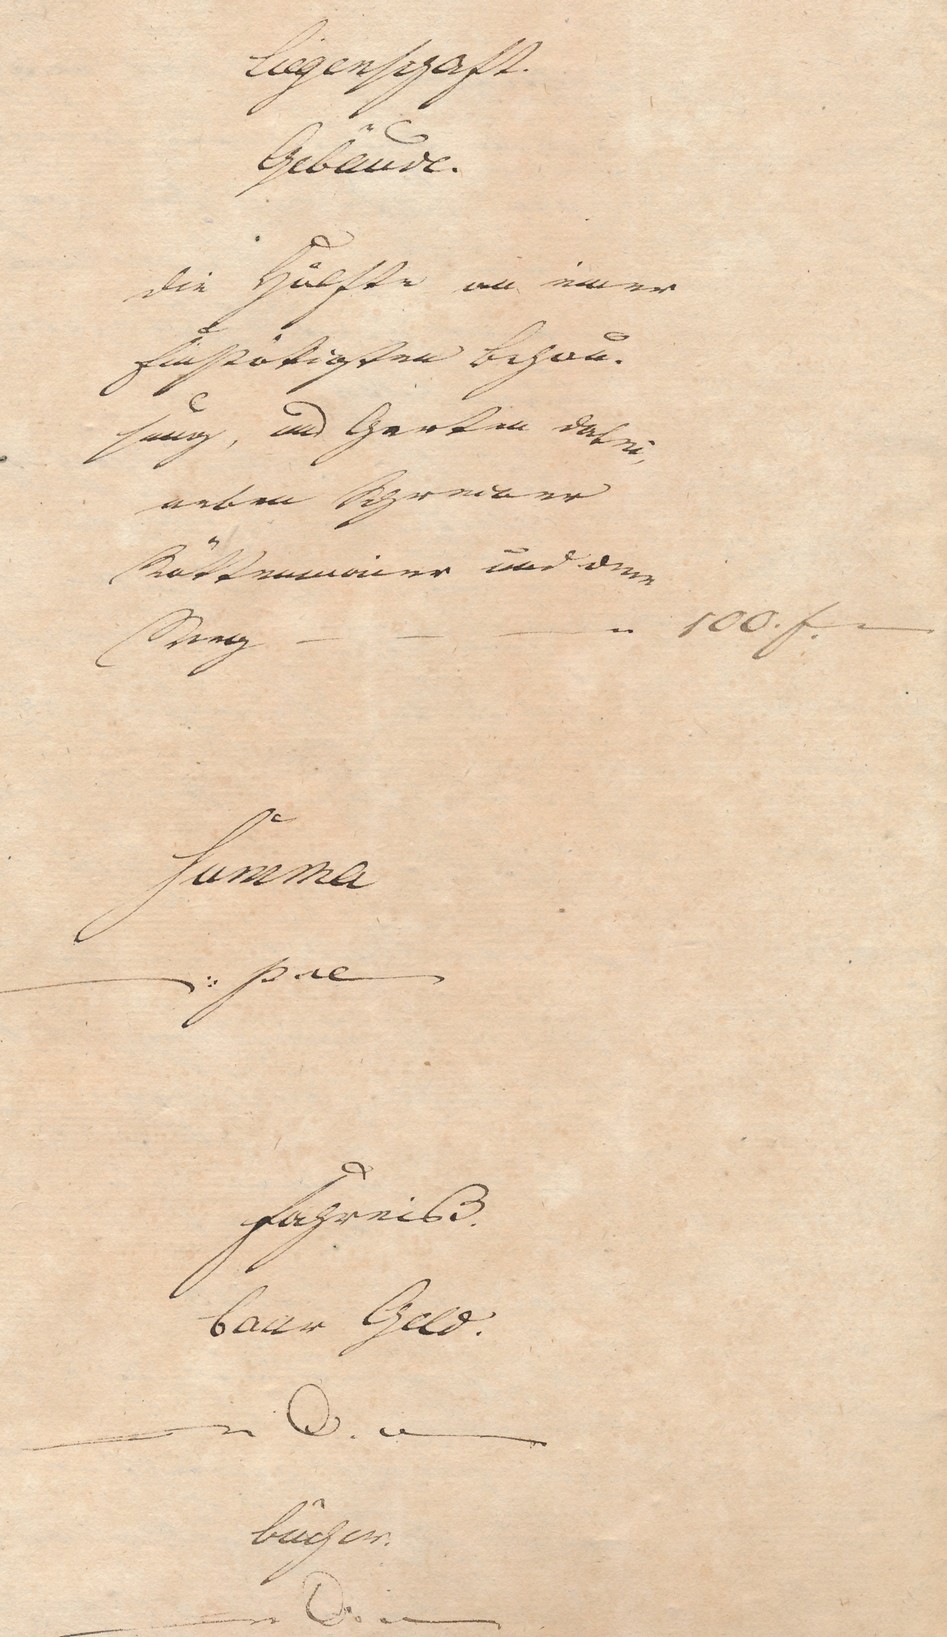 Liegenschaft.
Gebäude.
die Hälfte an einer
Einstökigten Behau-
sung, und Garten dabei,
neben Schreiner
und dem
Weeg — — — " 100. f. —
Summa
—:. per se —
Fahrniß.
baar Geld.
— " O. " —
bücher.
— " O. " —